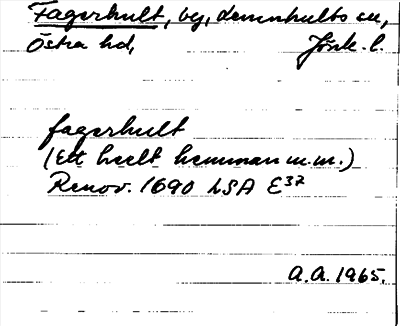 Fagerhult, by, Lemnhults sn,
Östra hd, Jönk. l.
fagerhult
(Ett heelt hemman m.m.)
Renov. 1690 LSA E³²
A.A. 1965.